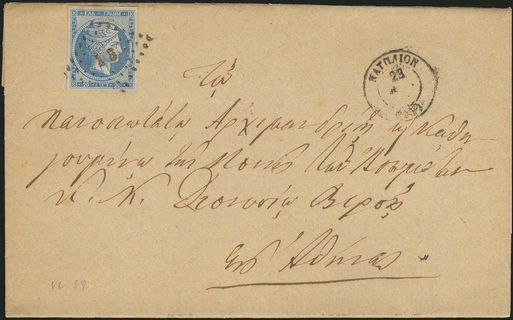 ΕΛΛ. ΓΡΑΜΜ.
ΝΑΥΠΛΙΟΝ
23
Τῷ
Πανοσιωτάτῳ Ἀρχιμανδρίτῃ κ Καθη
γουμένῳ τῆς Μονῆς τῶν Ἀσωμάτων
Κ. Κ. Διονυσίῳ
εἰς Ἀθήνας.
VL 39